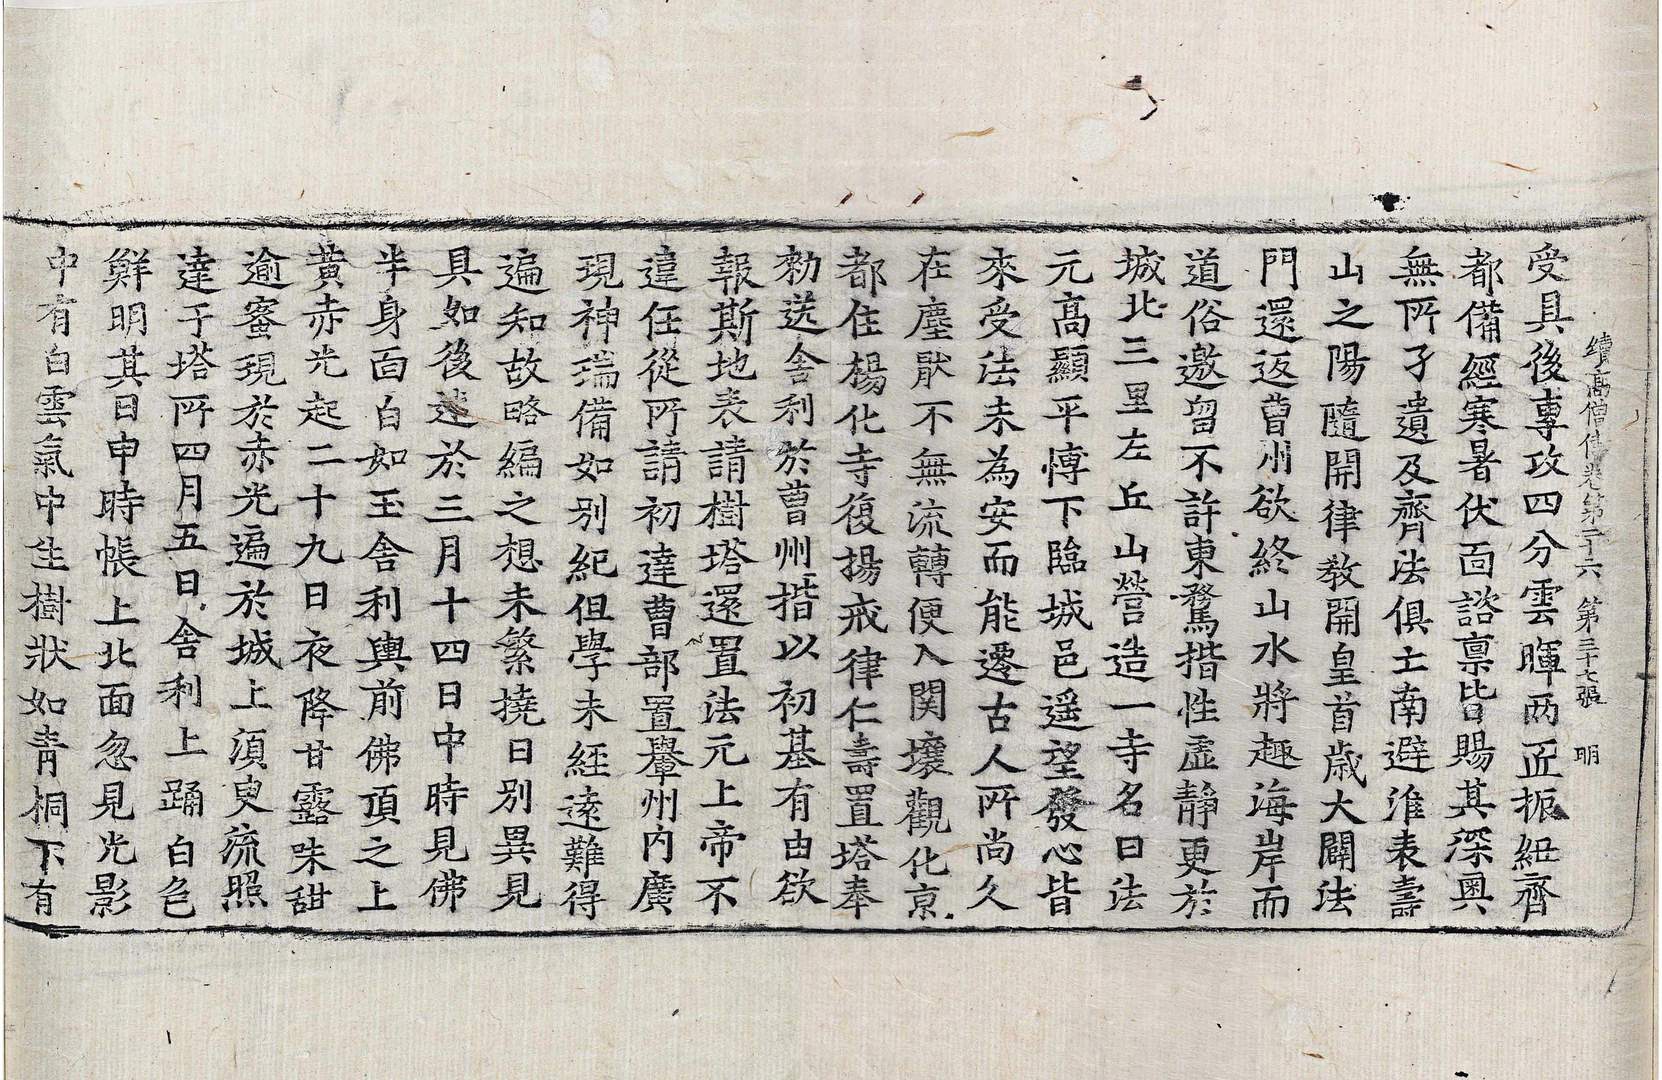 續高僧傳卷第二十六 第三十七張 明
受具後專攻四分雲暉兩匠振紐齊
都備經寒暑伏面諮禀皆賜其深奧
無所孑遺及齊法俱亡南避淮表壽
山之陽隨開律教開皇首歲大闢法
門還返曹州欲終山水將趣海岸而
道俗邀留不許東騖揩性虛靜更於
城北三里左丘山營造一寺名曰法
元高顯平博下臨城邑遥望發心皆
來受法未為安而能遷古人所尚久
在塵猒不無流轉便入関壤觀化京
都住楊化寺復揚戒律仁壽置塔奉
勑送舍利於曹州揩以初基有由欲
報斯地表請樹塔還置法元上帝不
違任從所請初達曹部置轝州內廣
現神瑞備如別紀但學未經遠難得
遍知故略編之想未繁撓日別異見
具如後述於三月十四日中時見佛
半身面白如玉舍利輿前佛頂之上
黄赤光起二十九日夜降甘露味甜
逾蜜現於赤光遍於城上湏臾流照
達于塔所四月五日舍利上踊白色
鮮明其日申時帳上北面忽見光影
中有白雲氣中生樹狀如青桐下有